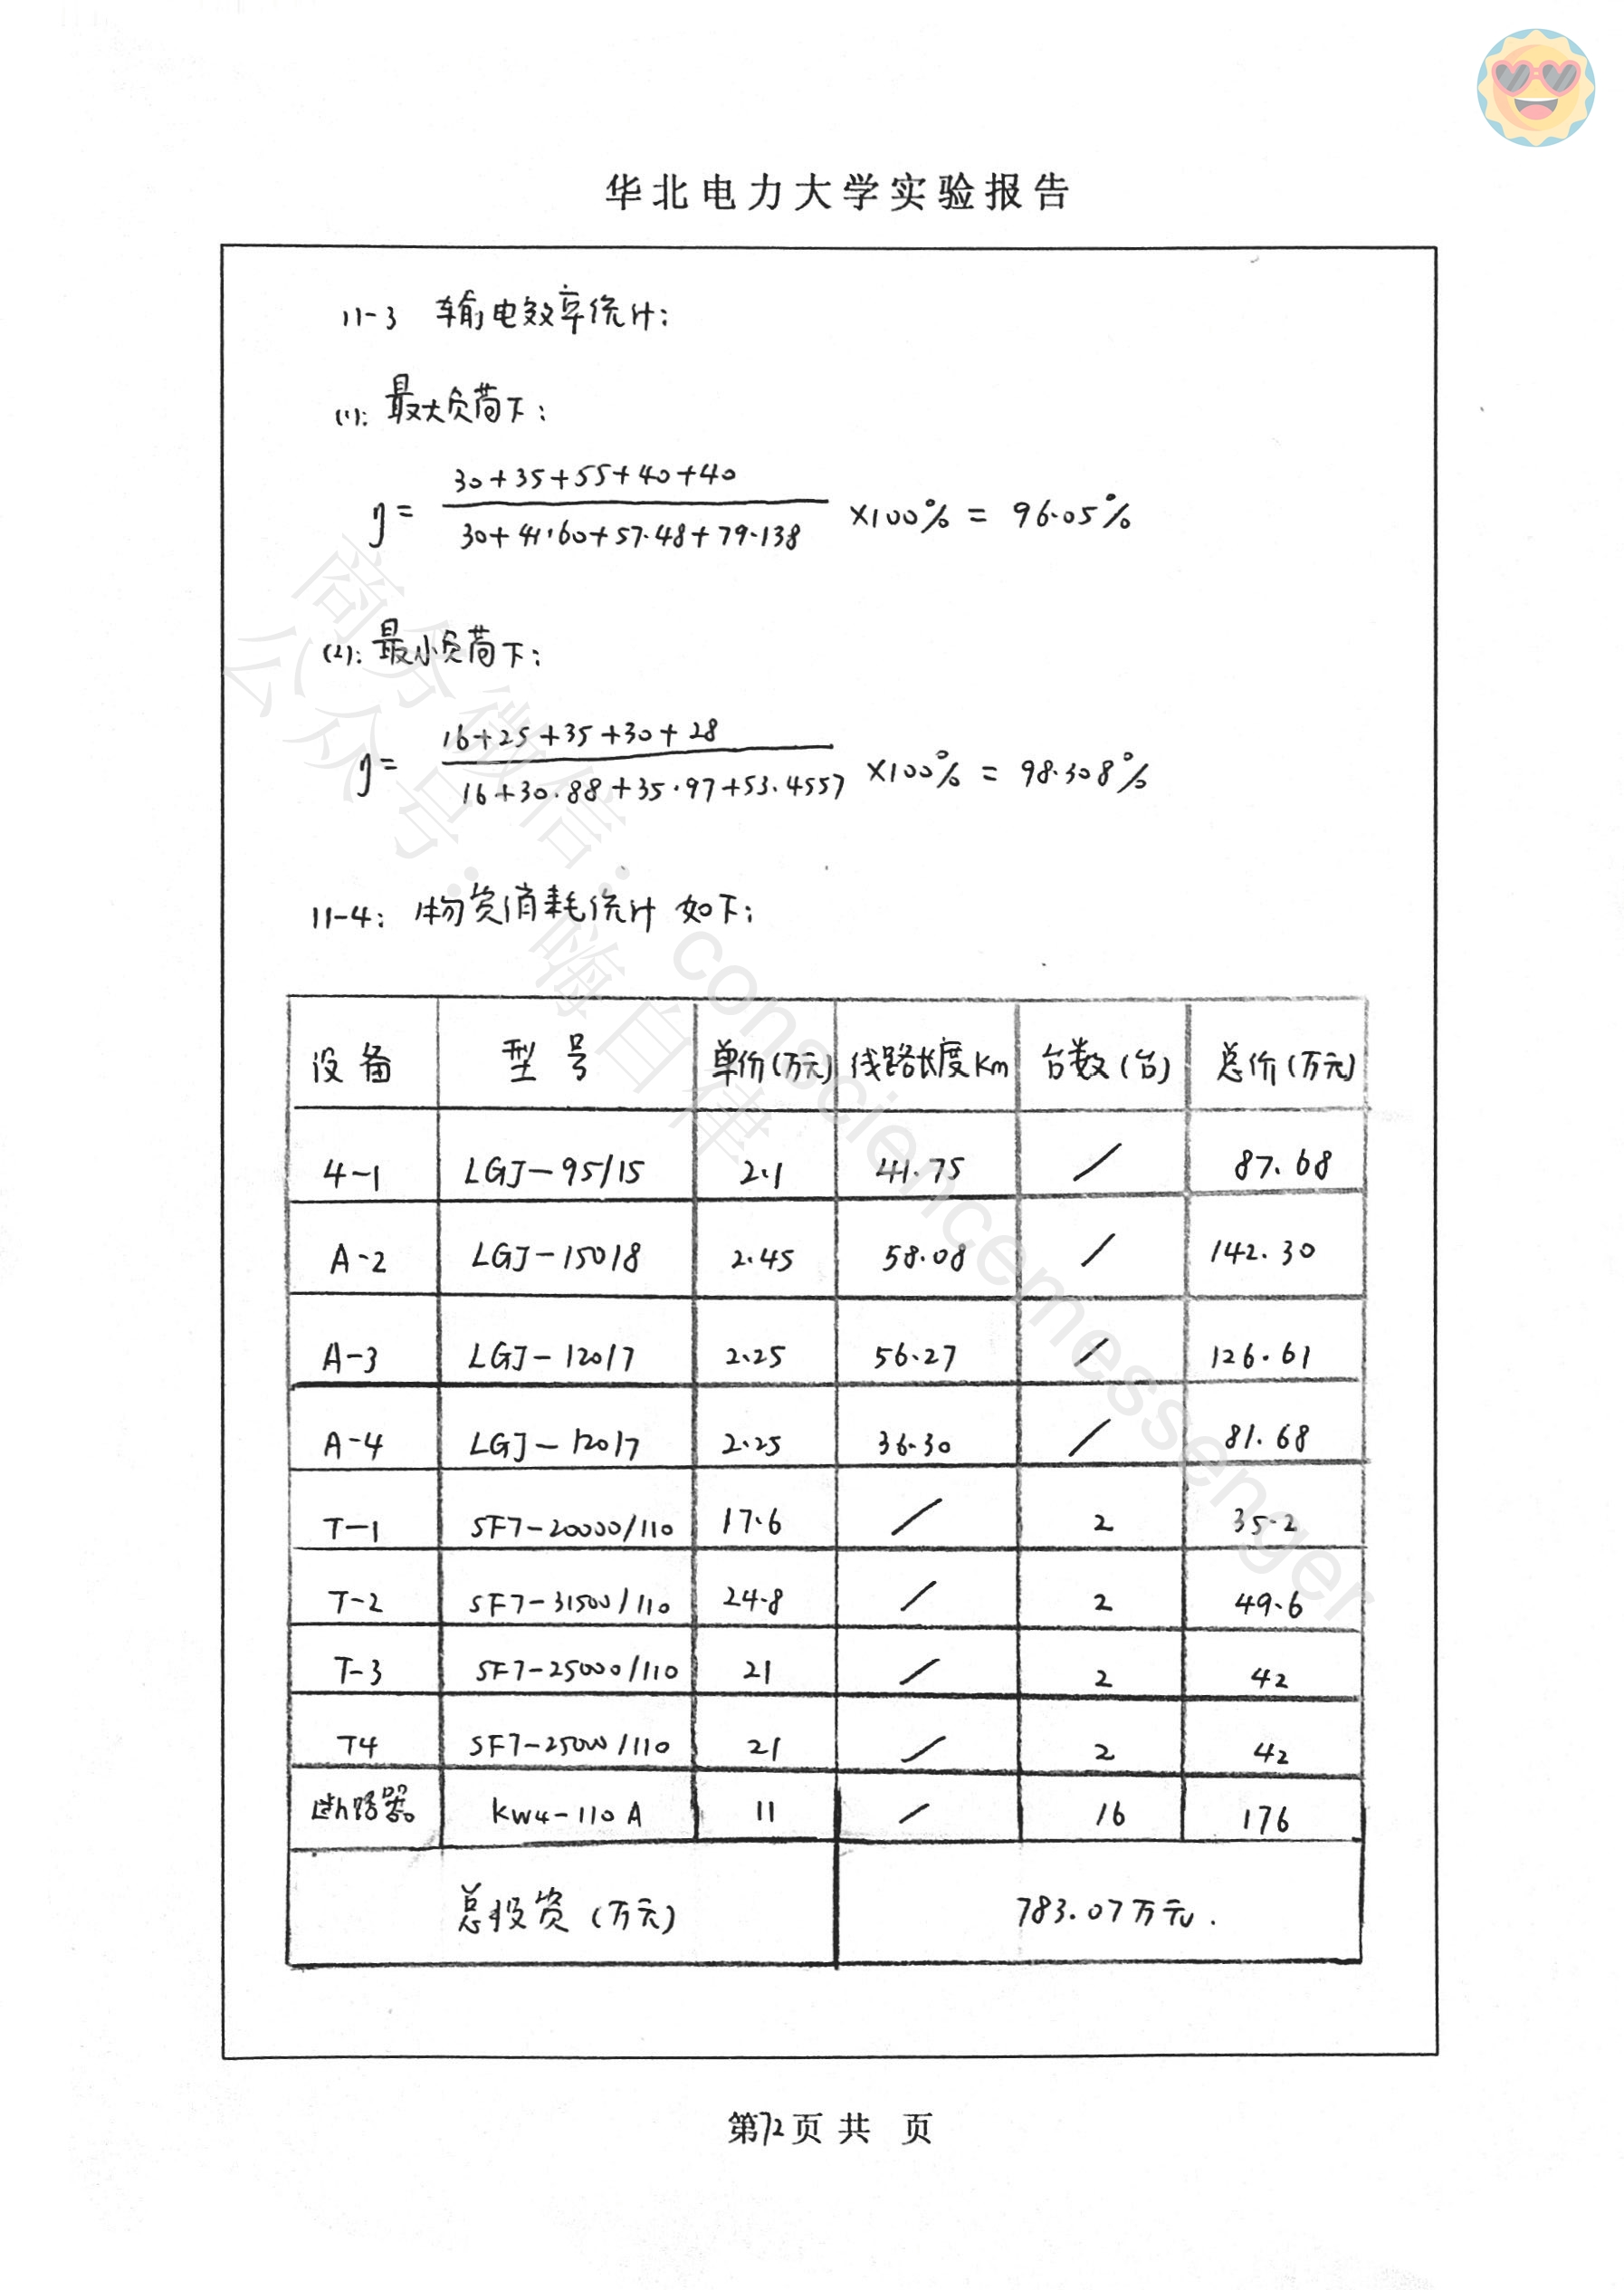 华北电力大学实验报告
11-3 输电效率统计:
(1): 最大负荷下:
η= (30+35+55+40+40)/(30+41.60+57.48+79.138) ×100% = 96.05%
(2): 最小负荷下:
η= (16+25+35+30+28)/(16+30.88+35.97+53.4557) ×100% = 98.308%
11-4: 物资消耗统计 如下:
设备 型号 单价(万元) 线路长度Km 台数(台) 总价(万元)
4-1 LGJ-95/15 2.1 41.75 / 87.68
A-2 LGJ-150/8 2.45 58.08 / 142.30
A-3 LGJ-120/7 2.25 56.27 / 126.61
A-4 LGJ-120/7 2.25 36.30 / 81.68
T-1 SF7-20000/110 17.6 / 2 35.2
T-2 SF7-31500/110 24.8 / 2 49.6
T-3 SF7-25000/110 21 / 2 42
T4 SF7-25000/110 21 / 2 42
断路器 KW4-110A 11 / 16 176
总投资(万元) 783.07万元.
第72页 共 页
商务微信: consciencemessenger
公众号: 嗨自律